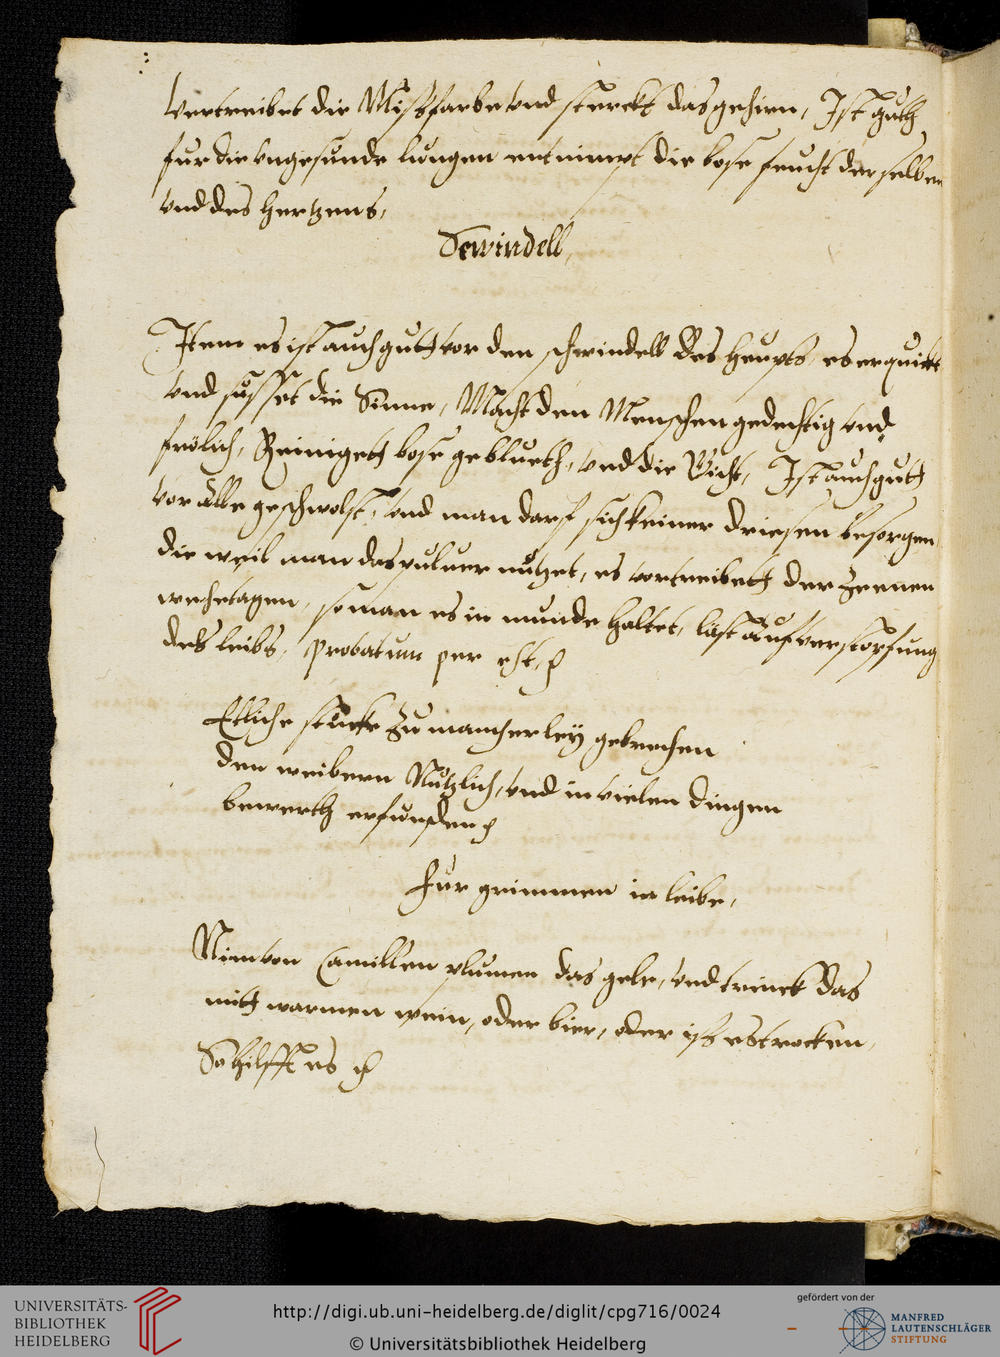 vertreibet die Mißfarbe vnd sterckt das gehirn, Ist guth
fur die vngesunde lungen entnimpt die bose feucht derselben
vnd des hertzens,
Swindell,
Item es ist auch gutt vor den schwindell des heupts, es erquickt
vnd susset die Sinne, Macht den Menschen gedechtig vnd
frölich, Reinigett bose geblueth, vnd die Gicht, Ist auch gutt
vor alle geschwolst, vnd man darf sich keiner driesen besorgen
die weil man das puluer nützet, es vortreibett der Zeenen
wehetagen, so man es in munde haltet, läst auf verstopfung
des leibs, probatum per est,
Etliche stucke zu mancherley gebrechen
den weibern Nutzlich, vnd in vielen dingen
bewerth erfunden
Fur grimmen in leibe,
Nim von Camillen plumen das gele, vnd trinck das
mitt warmen wein, oder bier, oder iß es trocken,
So hilfft es
UNIVERSITÄTS-
BIBLIOTHEK
HEIDELBERG
http://digi.ub.uni-heidelberg.de/diglit/cpg716/0024
© Universitätsbibliothek Heidelberg
gefördert von der
MANFRED
LAUTENSCHLÄGER
STIFTUNG